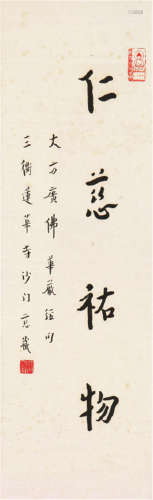 仁慈祐物
大方廣佛華嚴經句
三衢蓮華寺沙门